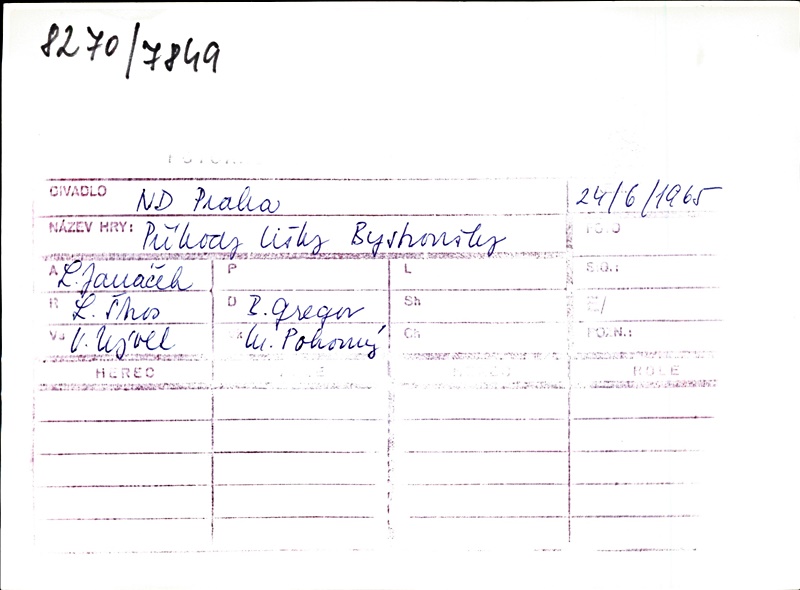 8270/7849
DIVADLO ND Praha 24/6/1965
NÁZEV HRY: Příhody lišky Bystroušky FOTO
A L. Janáček P L S.O.:
R L. Štros D B. Gregor Sh
V. Nývlt M. Pokorný Ch POZN.:
HEREC ROLE HEREC ROLE